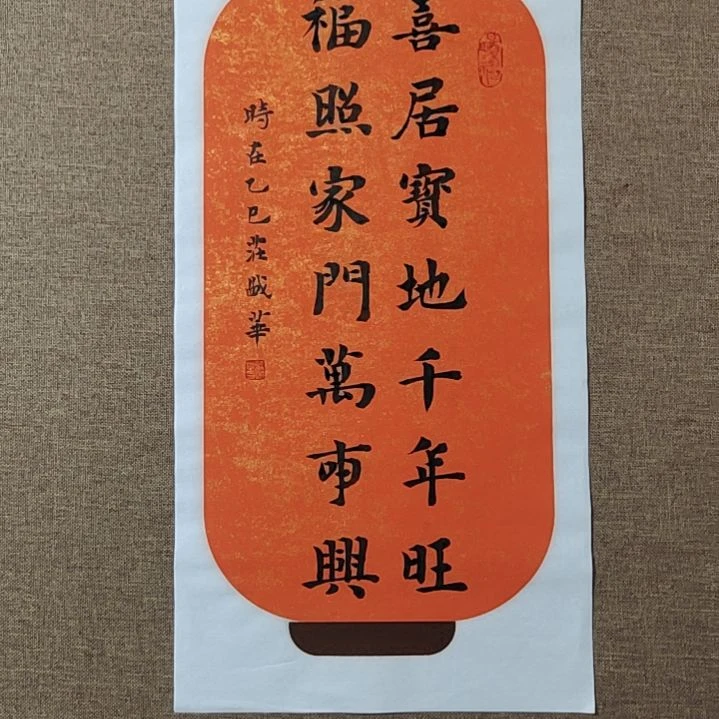 喜居寶地千年旺
福照家門萬事興
時在乙巳莊晠華